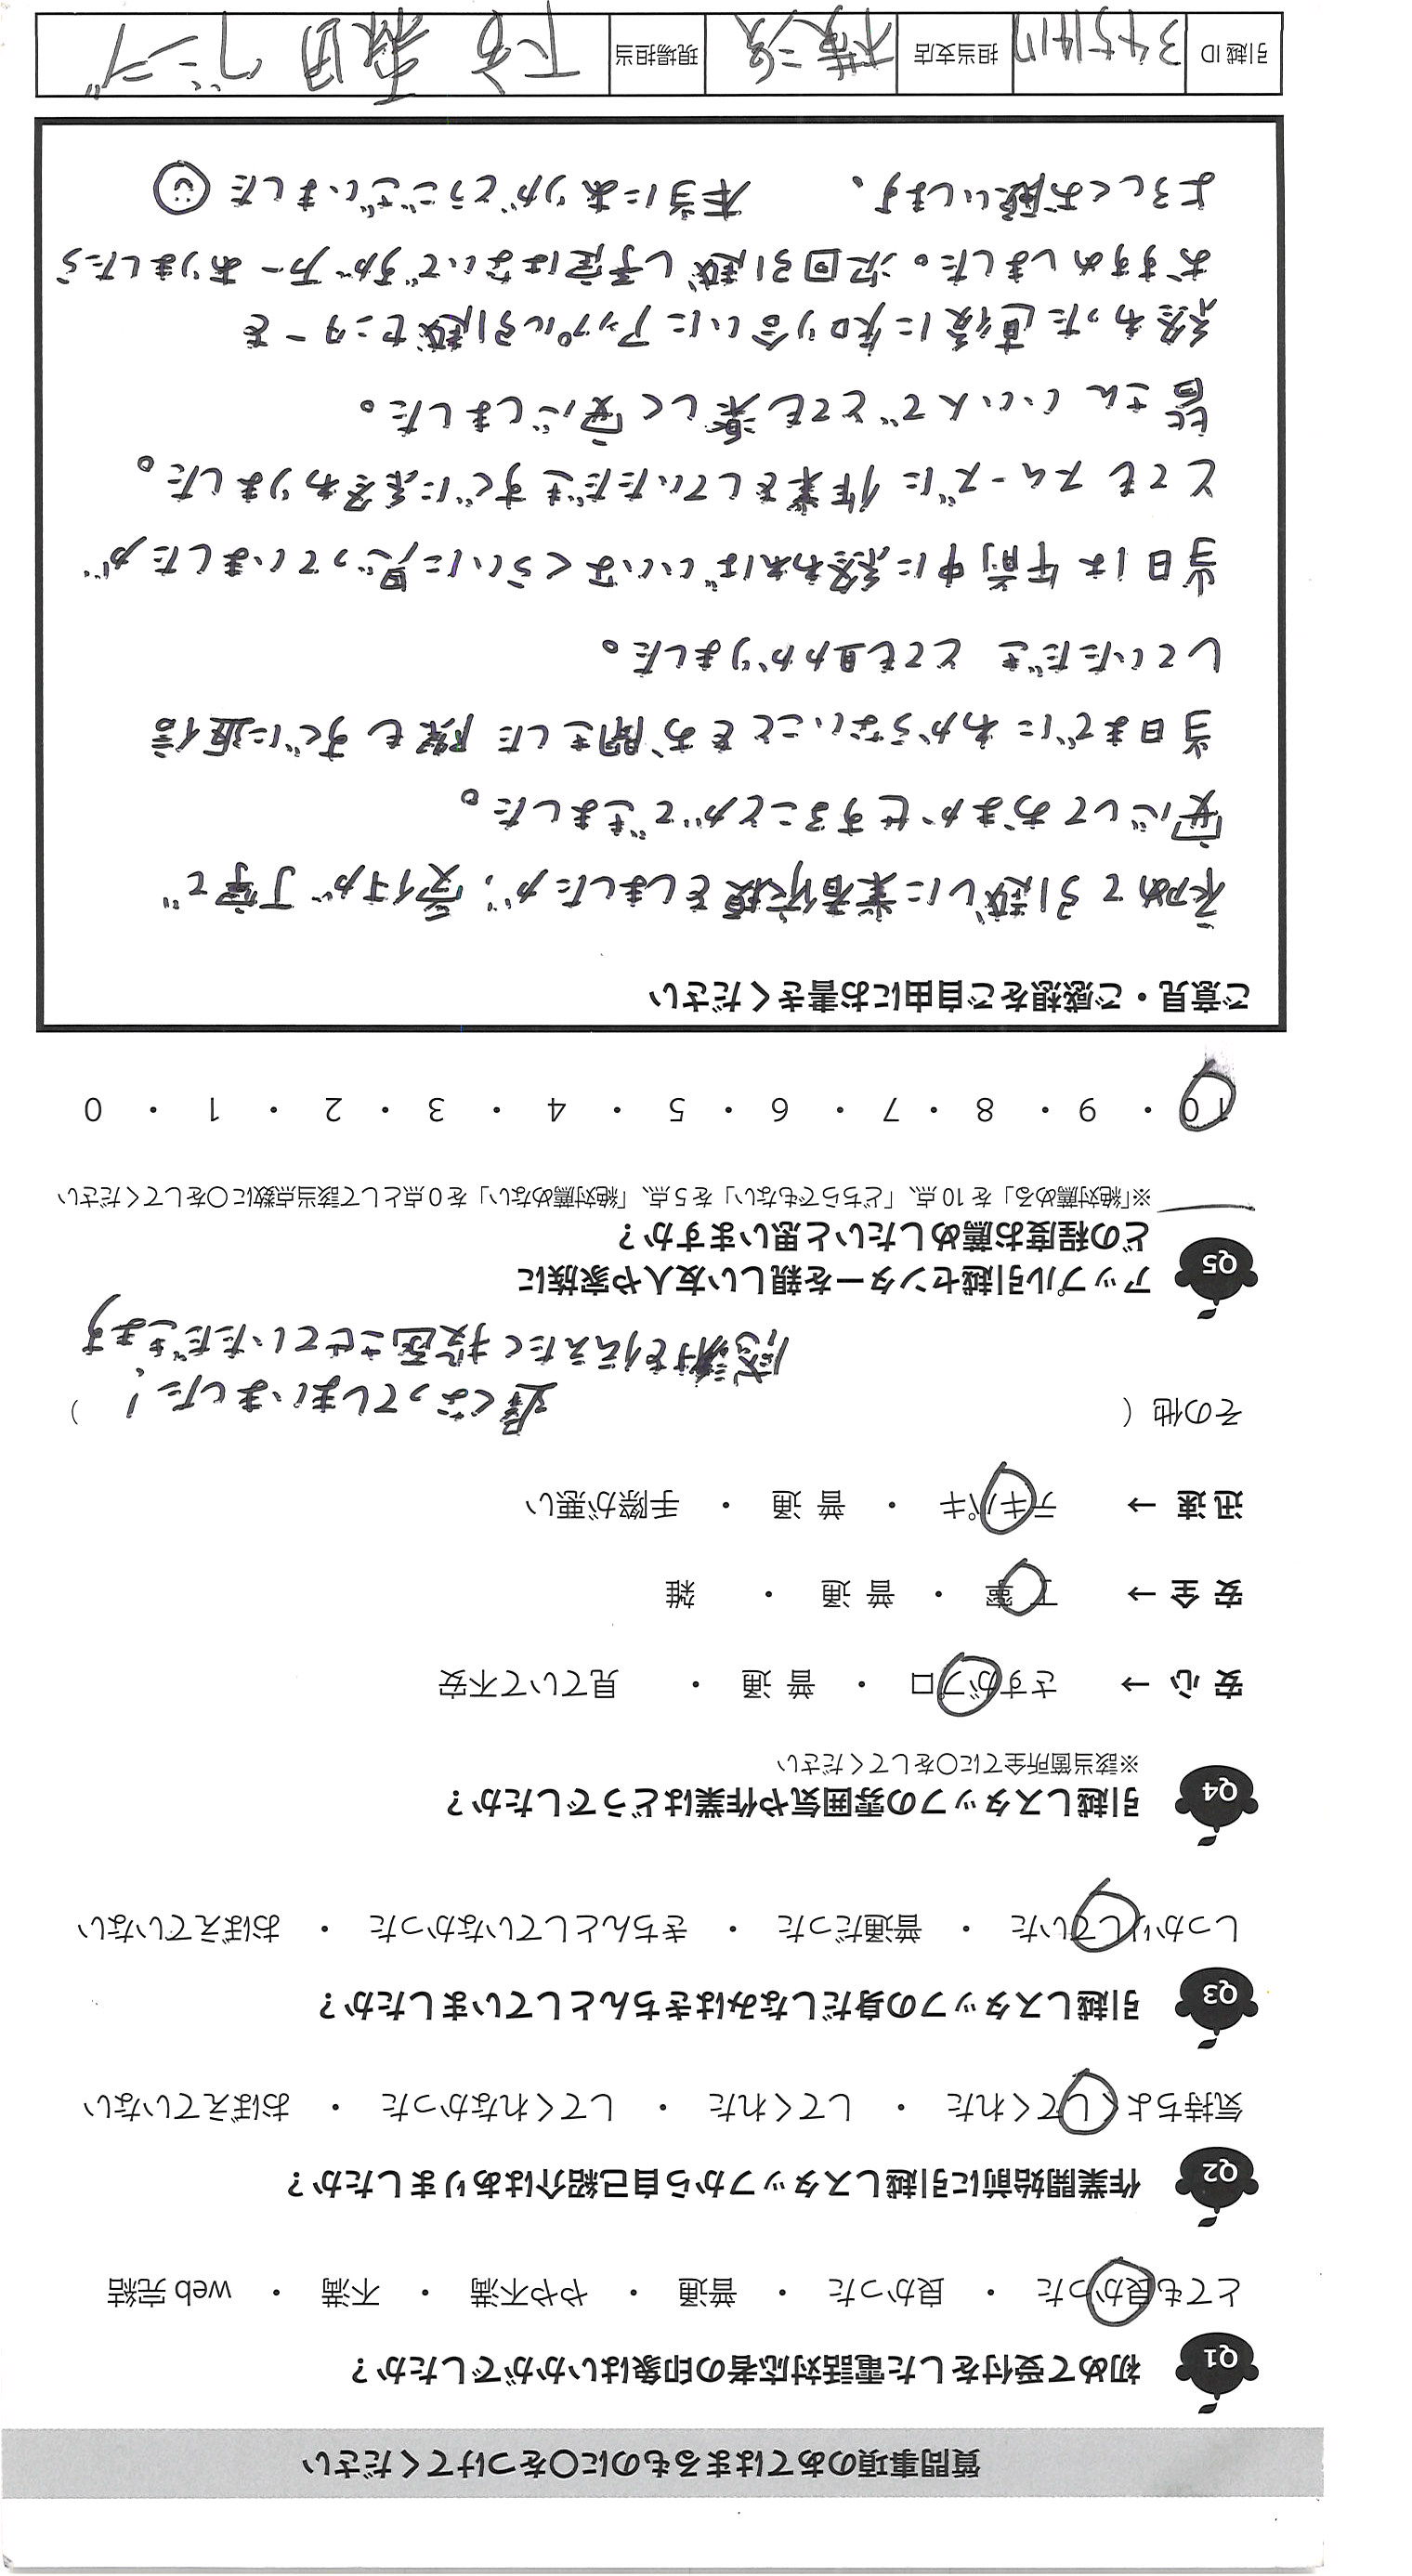 質問事項のあてはまるものに○をつけてください
Q1 初めて受付をした電話対応者の印象はいかがでしたか?
とても良かった ・ 良かった ・ 普通 ・ やや不満 ・ 不満 ・ web 完結
Q2 作業開始前に引越しスタッフから自己紹介はありましたか?
気持ちよくしてくれた ・ してくれた ・ してくれなかった ・ おぼえていない
Q3 引越しスタッフの身だしなみはきちんとしていましたか?
しっかりしていた ・ 普通だった ・ きちんとしていなかった ・ おぼえていない
Q4 引越しスタッフの雰囲気や作業はどうでしたか?
※該当箇所全てに○をしてください
安 心 → さすがプロ ・ 普 通 ・ 見ていて不安
安 全 → 丁 寧 ・ 普 通 ・ 雑
迅 速 → テキパキ ・ 普 通 ・ 手際が悪い
その他( 遅くなってしまいました! )
感謝を伝えたく投函させていただきます
Q5 アップル引越センターを親しい友人や家族に
どの程度お薦めしたいと思いますか?
※「絶対薦める」を 10 点、「どちらでもない」を 5 点、「絶対薦めない」を 0 点として該当点数に○をしてください
10 ・ 9 ・ 8 ・ 7 ・ 6 ・ 5 ・ 4 ・ 3 ・ 2 ・ 1 ・ 0
ご意見・ご感想をご自由にお書きください
初めて引越しに業者依頼をしましたが、受付が丁寧で
安心しておまかせすることができました。
当日までにわからないことをお聞きした際もすぐに返信
していただき とても助かりました。
当日は午前中に終わればいいなくらいに思っていましたが
とてもスムーズに作業をしていただきすぐに終わりました。
皆さんいい人でとても楽しく安心しました。
終わった直後に知り合いにアップル引越センターを
おすすめしました。次回引越し予定はないですが万一ありましたら
よろしくお願いします。 本当にありがとうございました
引越 ID 担当支店 横浜 現場担当 森田